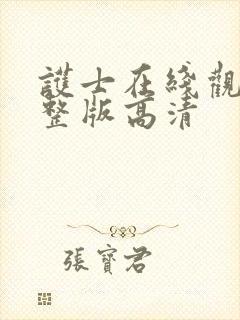 護士在綫觀
整版高清
張寶君